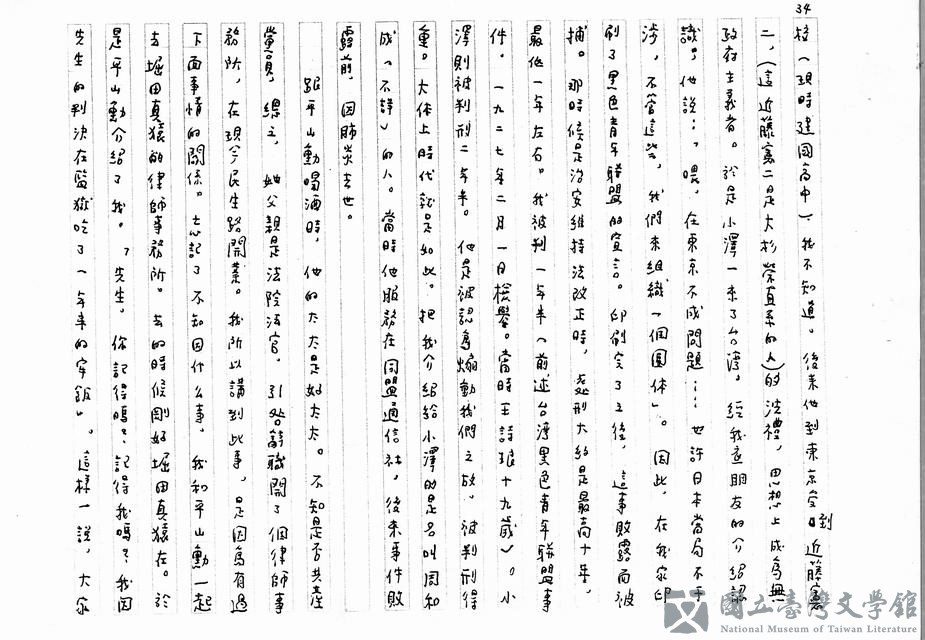 34
校(現時建國高中)我不知道。後來他到東京受到近藤憲
二,(這近藤憲二是大杉榮直系的人)的洗禮,思想上成為無
政府主義者。於是小澤一來了台灣,經我查朋友的介紹認
識,他說:「喂,在東京不成問題……也許日本當局不干
涉,不管這些,我們來組織一個團体」。因此,在我家印
刷了黑色青年聯盟的宣言。印刷完了之後,這事敗露而被
捕。那時候是治安維持法改正時,處刑大約是最高十年,
最低一年左右。我被判一年半(前述台灣黑色青年聯盟事
件。一九二七年二月一日檢舉。當時王詩琅十九歲)。小
澤則被判刑二年半。他是被認為煽動我們之故,被判刑得
重。大体上時代就是如此。把我介紹給小澤的是名叫周和
成(不詳)的人。當時他服務在同盟通信社,後來事件敗
露前,因肺炎去世。
跟平山勳喝酒時,他的太太是好太太。不知是否共產
黨員,總之,她父親是法院法官,引咎辭職開了個律師事
務所,在現今民生路開業。我所以講到此事,是因為有過
下面事情的關係。忘記了不知因什么事,我和平山勳一起
去堀田真猿的律師事務所。去的時候剛好堀田真猿在。於
是平山勳介紹了我。「先生,你記得嗎?記得我嗎?我因
先生的判決在監獄吃了一年半的牢飯」。這樣一說,大家
國立臺灣文學館
National Museum of Taiwan Literature